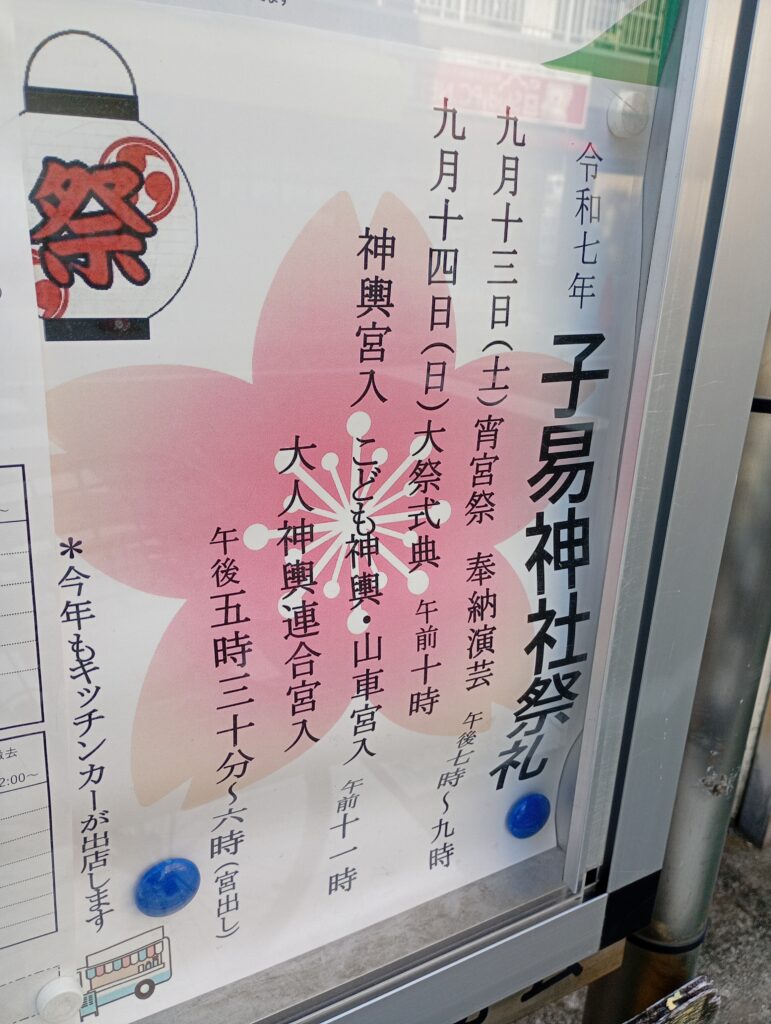 令和七年 子易神社祭礼
九月十三日(土)宵宮祭 奉納演芸 午後七時～九時
九月十四日(日)大祭式典 午前十時
神輿宮入 こども神輿・山車宮入 午前十一時
大人神輿連合宮入
午後五時三十分～六時(宮出し)
*今年もキッチンカーが出店します
祭
撤去
2:00～